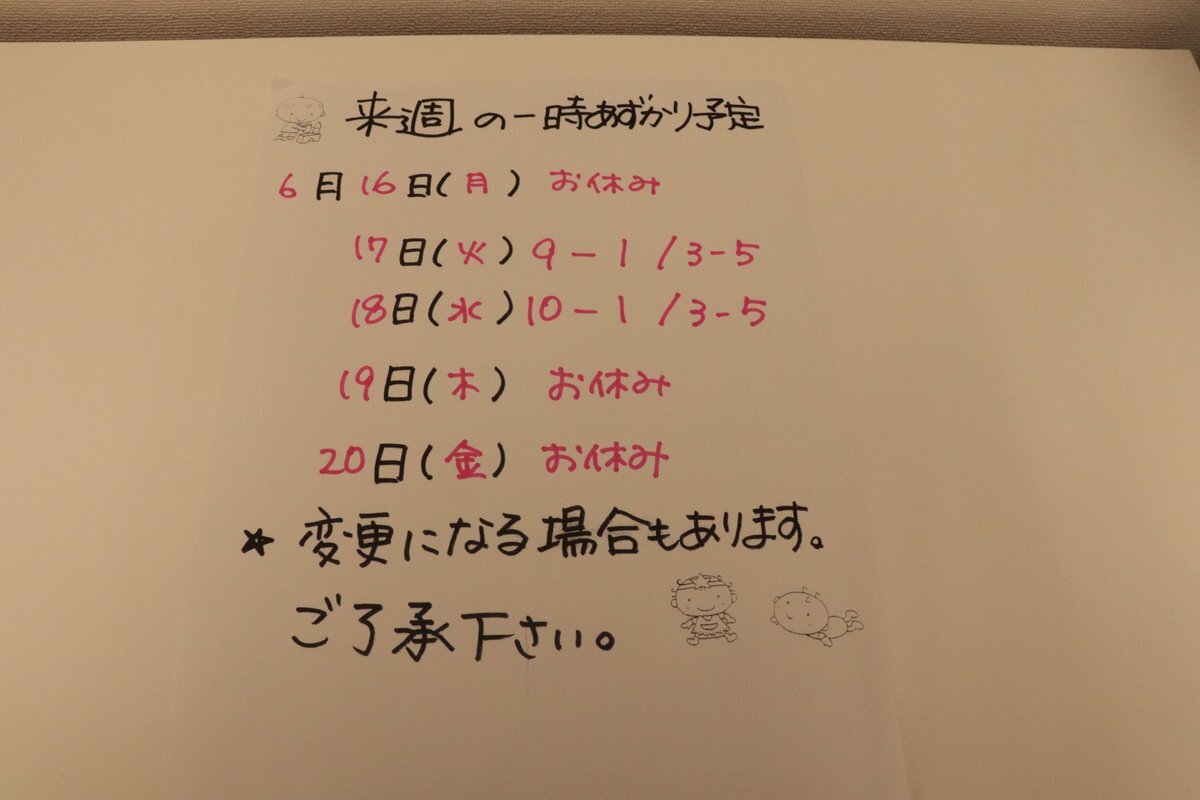 来週の一時あずかり予定
6月16日(月) お休み
17日(火) 9-1 /3-5
18日(水) 10-1 /3-5
19日(木) お休み
20日(金) お休み
☆ 変更になる場合もあります。
ご了承下さい。